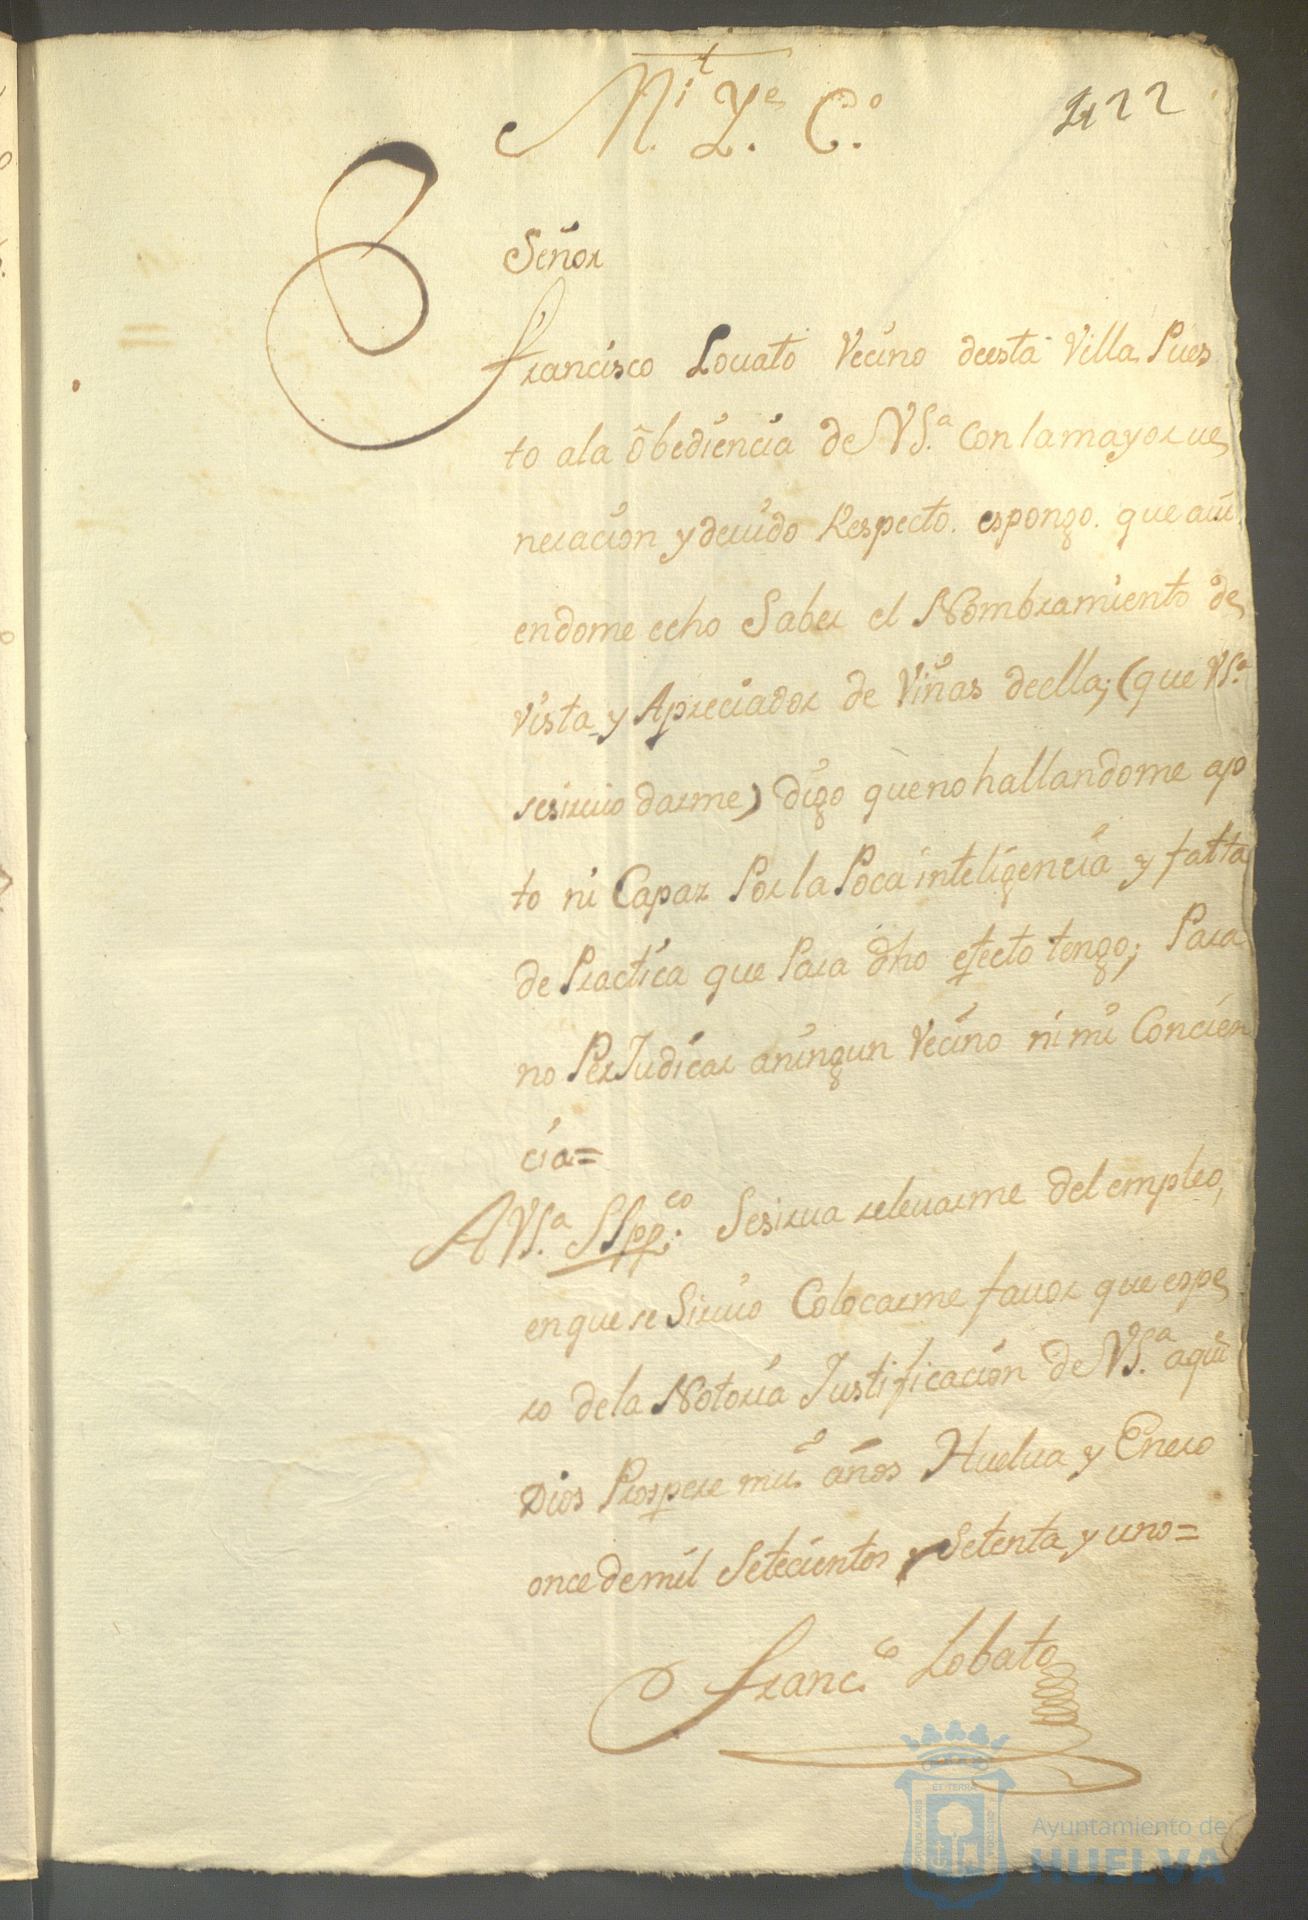 M.t Y.e C.o
422
Señor
Francisco Louato Vecino deesta Villa Pues
to ala Obediencia de VS.a con la mayor ue
neracion y deuido Respecto. espongo. que aui
endome echo Saber el Nombramiento de
Vista y Apreciador de Viñas deella; (que VS.a
sesiruio darme) digo queno hallandome ap
to ni Capaz Por la Poca inteligencia y falta
de Practica que Para dho efecto tengo; Para
no PerJudicar aningun Vecino ni mi Concien
cia=
A VS.a SSpp.co Sesirua releuarme del empleo,
enque se Siruio Colocarme fauor que espe
ro dela Notoria Justificacion de VS.a aqui
Dios Prospere mu.s años Huelua y Enero
once de mil Setecientos y Setenta y uno=
Franc.co Lobato
ET TERRÆ
Ayuntamiento de
HUELVA